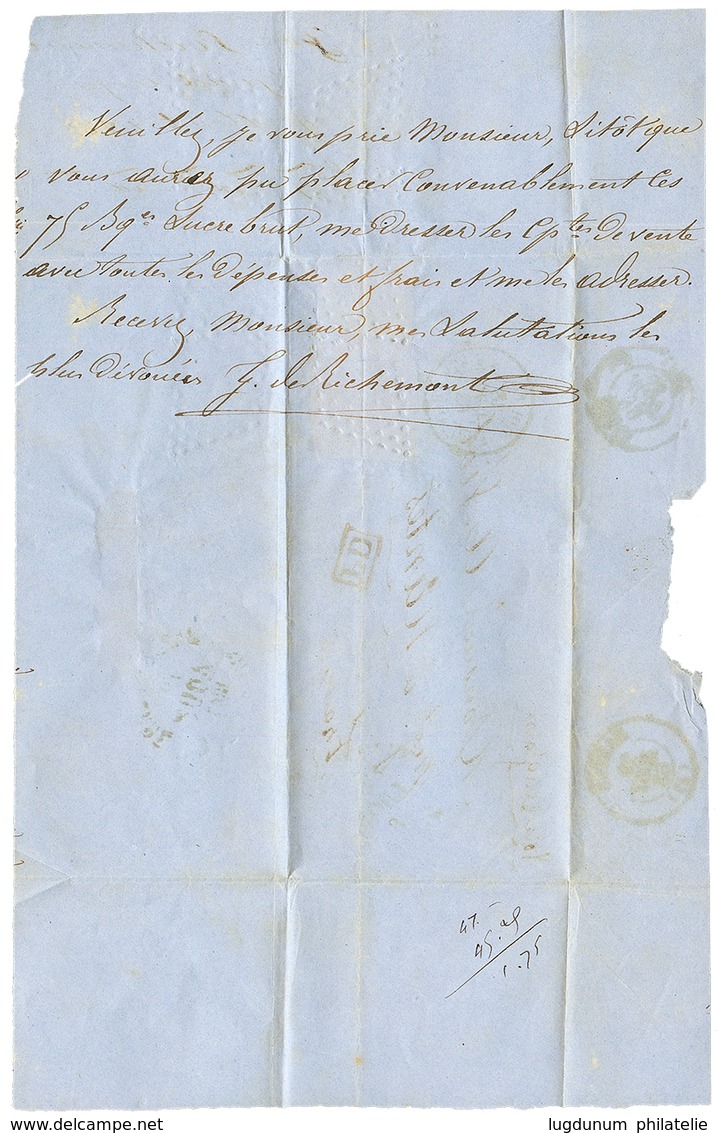 Veuillez, je vous prie Monsieur, Sitôt que
vous aurez pu placer Convenablement les
75 Bques Sucre brut, me dresser les Cptes de vente
avec toutes les dépenses et frais et me les adresser.
Recevez, Monsieur, mes Salutations les
plus dévouées J. de Richemont
PD
lugdunum philatelie